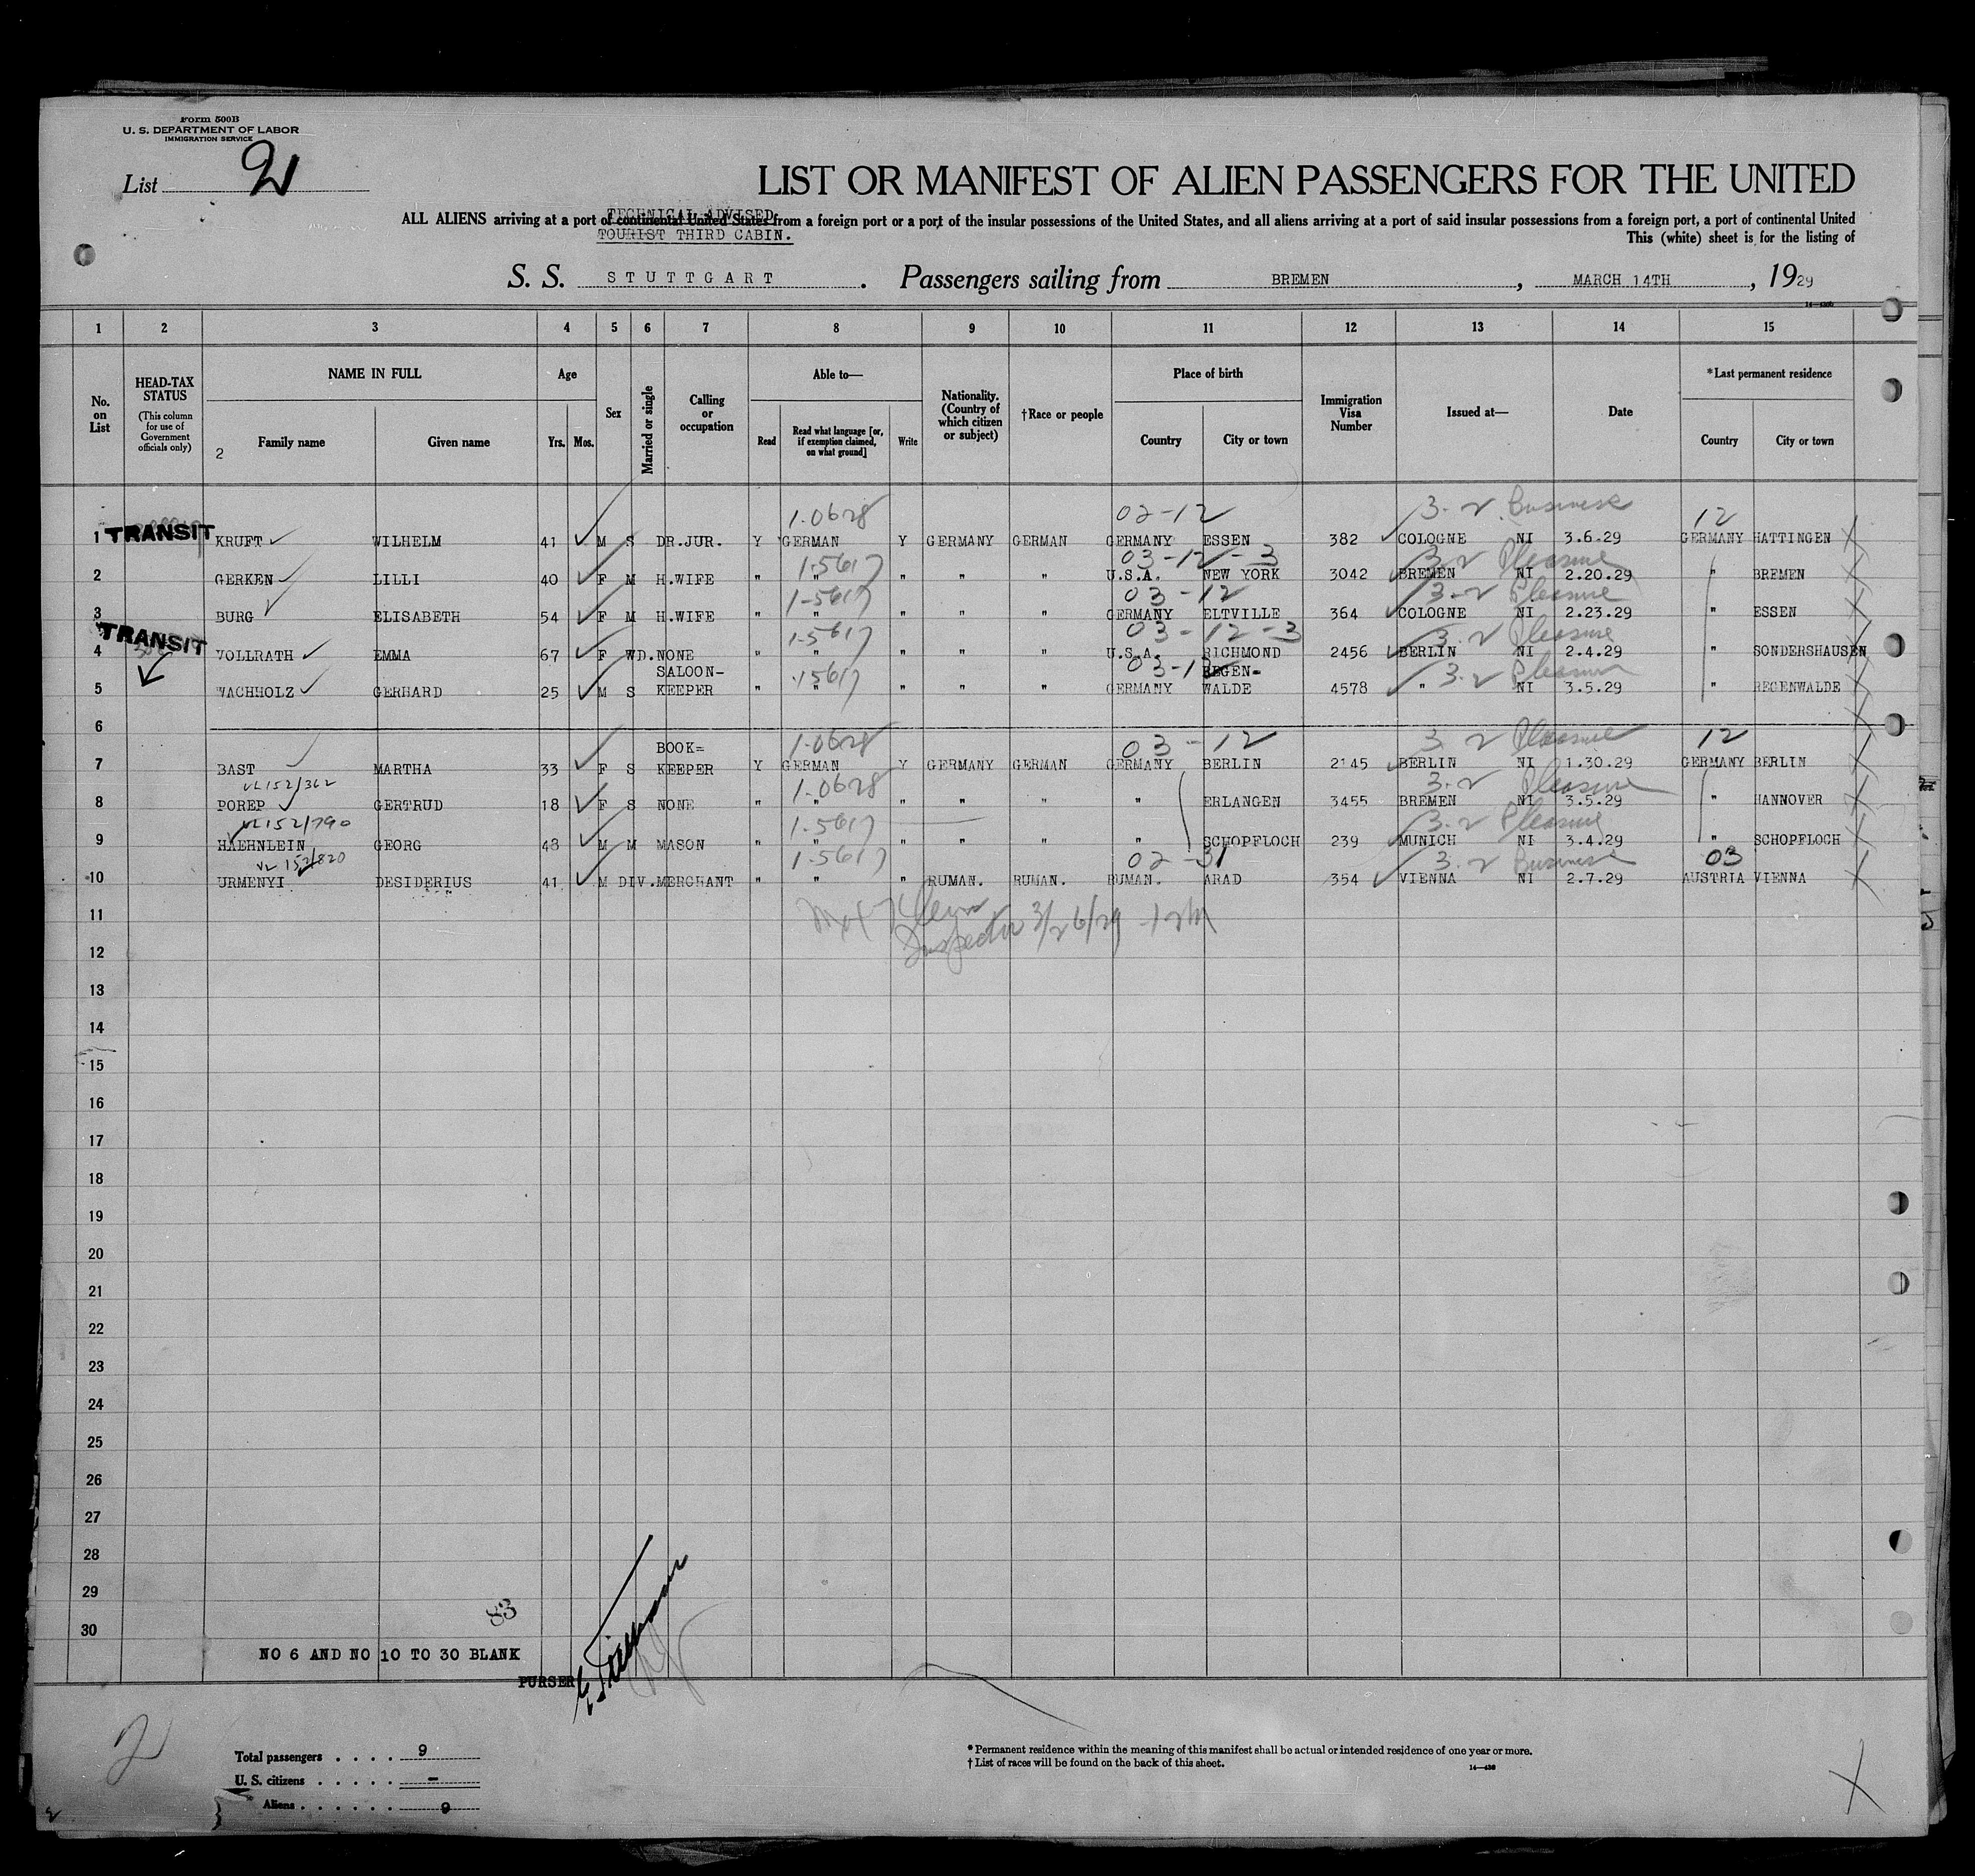 Form 500B
U. S. DEPARTMENT OF LABOR
IMMIGRATION SERVICE
List 2
LIST OR MANIFEST OF ALIEN PASSENGERS FOR THE UNITED
TECHNICAL ADVISED
ALL ALIENS arriving at a port of continental United States from a foreign port or a port of the insular possessions of the United States, and all aliens arriving at a port of said insular possessions from a foreign port, a port of continental United
TOURIST THIRD CABIN.
This (white) sheet is for the listing of
S. S. STUTTGART. Passengers sailing from BREMEN, MARCH 14TH, 1929
1 2 3 4 5 6 7 8 9 10 11 12 13 14 15
No. on List
HEAD-TAX STATUS (This column for use of Government officials only)
NAME IN FULL
2 Family name Given name
Age Yrs. Mos.
Sex
Married or single
Calling or occupation
Able to— Read Read what language [or, if exemption claimed, on what ground] Write
Nationality. (Country of which citizen or subject)
†Race or people
Place of birth Country City or town
Immigration Visa Number
Issued at—
Date
*Last permanent residence Country City or town
1-0628 02-12 3-2 Business 12
1 TRANSIT KRUFT WILHELM 41 M S DR.JUR. Y GERMAN Y GERMANY GERMAN GERMANY ESSEN 382 COLOGNE NI 3.6.29 GERMANY HATTINGEN
1-5617 03-12-3 3-2 Pleasure
2 GERKEN LILLI 40 F M H.WIFE " " " " " U.S.A. NEW YORK 3042 BREMEN NI 2.20.29 " BREMEN
1-5617 03-12 3-2 Pleasure
3 BURG ELISABETH 54 F M H.WIFE " " " " " GERMANY ELTVILLE 364 COLOGNE NI 2.23.29 " ESSEN
1-5617 03-12-3 3-2 Pleasure
4 TRANSIT VOLLRATH EMMA 67 F WD. NONE " " " " " U.S.A. RICHMOND 2456 BERLIN NI 2.4.29 " SONDERSHAUSEN
SALOON- 1-5617 REGEN- 3-2 Pleasure
5 WACHHOLZ GERHARD 25 M S KEEPER " " " " " GERMANY WALDE 4578 " NI 3.5.29 " REGENWALDE
6
BOOK= 1-0628 03-12 3-2 Pleasure 12
7 BAST MARTHA 33 F S KEEPER Y GERMAN Y GERMANY GERMAN GERMANY BERLIN 2145 BERLIN NI 1.30.29 GERMANY BERLIN
VL152/362 1-0628 3-2 Pleasure
8 POREP GERTRUD 18 F S NONE " " " " " " ERLANGEN 3455 BREMEN NI 3.5.29 " HANNOVER
VL152/790 1-5617 3-2 Pleasure
9 HAEHNLEIN GEORG 48 M M MASON " " " " " " SCHOPFLOCH 239 MUNICH NI 3.4.29 " SCHOPFLOCH
VL 152/820 1-5617 02-31 3-2 Business 03
10 URMENYI DESIDERIUS 41 M DIV. MERCHANT " " " RUMAN. RUMAN. RUMAN. ARAD 354 VIENNA NI 2.7.29 AUSTRIA VIENNA
11
Inspector 3/26/29
12
13
14
15
16
17
18
19
20
21
22
23
24
25
26
27
28
29
83
30
NO 6 AND NO 10 TO 30 BLANK
PURSER
2
Total passengers . . . . 9
U. S. citizens . . . . . -
Aliens . . . . . . 9
*Permanent residence within the meaning of this manifest shall be actual or intended residence of one year or more.
†List of races will be found on the back of this sheet.
14—430